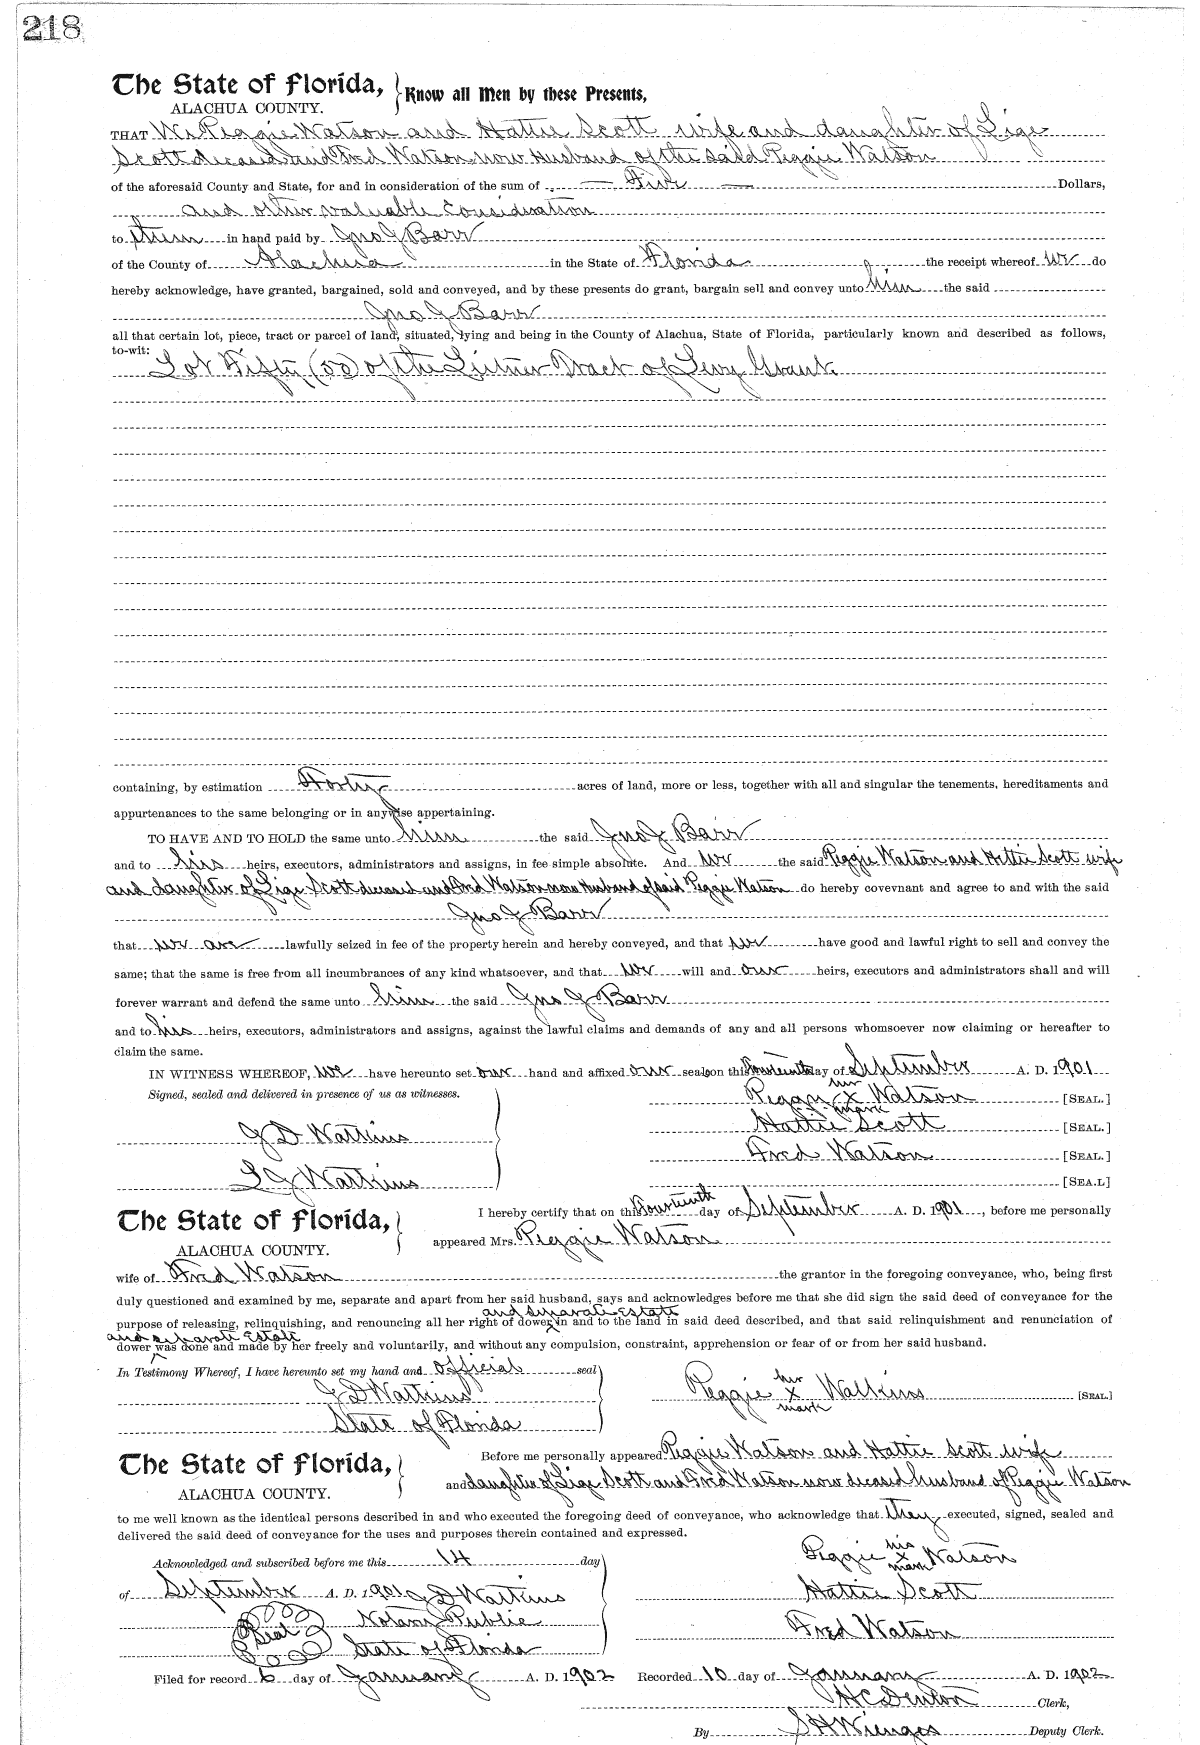 218
The State of Florida, Know all Men by these Presents,
ALACHUA COUNTY.
THAT We Peggie Watson and Hattie Scott wife and daughter of Lige
Scott deceased and Fred Watson now Husband of the said Peggie Watson
of the aforesaid County and State, for and in consideration of the sum of Five Dollars,
and other valuable consideration
to them in hand paid by Jno J Barr
of the County of Alachua in the State of Florida the receipt whereof we do
hereby acknowledge, have granted, bargained, sold and conveyed, and by these presents do grant, bargain sell and convey unto him the said
Jno J Barr
all that certain lot, piece, tract or parcel of land, situated, lying and being in the County of Alachua, State of Florida, particularly known and described as follows,
to-wit:
Lot Fifty (50) of the Tract of Levy Grant
containing, by estimation Forty acres of land, more or less, together with all and singular the tenements, hereditaments and
appurtenances to the same belonging or in anywise appertaining.
TO HAVE AND TO HOLD the same unto him the said Jno J Barr
and to his heirs, executors, administrators and assigns, in fee simple absolute. And we the said Peggie Watson and Hattie Scott wife
and daughter of Lige Scott deceased and Fred Watson now Husband of said Peggie Watson do hereby covevnant and agree to and with the said
Jno J Barr
that we are lawfully seized in fee of the property herein and hereby conveyed, and that we have good and lawful right to sell and convey the
same; that the same is free from all incumbrances of any kind whatsoever, and that we will and our heirs, executors and administrators shall and will
forever warrant and defend the same unto him the said Jno J Barr
and to his heirs, executors, administrators and assigns, against the lawful claims and demands of any and all persons whomsoever now claiming or hereafter to
claim the same.
IN WITNESS WHEREOF, we have hereunto set our hand and affixed our seals on this fourteenth day of September A. D. 1901
Signed, sealed and delivered in presence of us as witnesses.
Peggy her x mark Watson [SEAL.]
Hattie Scott [SEAL.]
J D Watkins
Fred Watson [SEAL.]
L J Watkins
[SEA.L]
The State of Florida,
ALACHUA COUNTY.
I hereby certify that on this fourteenth day of September A. D. 1901, before me personally
appeared Mrs. Peggie Watson
wife of Fred Watson the grantor in the foregoing conveyance, who, being first
duly questioned and examined by me, separate and apart from her said husband, says and acknowledges before me that she did sign the said deed of conveyance for the
and separate Estate
purpose of releasing, relinquishing, and renouncing all her right of dower, in and to the land in said deed described, and that said relinquishment and renunciation of
and separate Estate
dower was done and made by her freely and voluntarily, and without any compulsion, constraint, apprehension or fear of or from her said husband.
In Testimony Whereof, I have hereunto set my hand and official seal
J D Watkins
Peggie her x mark Watkins [SEAL.]
State of Florida
The State of Florida,
ALACHUA COUNTY.
Before me personally appeared Peggie Watson and Hattie Scott wife
and daughter of Lige Scott and Fred Watson now deceased husband of Peggie Watson
to me well known as the identical persons described in and who executed the foregoing deed of conveyance, who acknowledge that they executed, signed, sealed and
delivered the said deed of conveyance for the uses and purposes therein contained and expressed.
Acknowledged and subscribed before me this 14 day
Peggie his x mark Watson
of September A. D. 1901 J D Watkins
Hattie Scott
Seal Notary Public
Fred Watson
State of Florida
Filed for record 6 day of January A. D. 1902 Recorded 10 day of January A. D. 1902
H C Denton Clerk,
By S H Wienges Deputy Clerk.